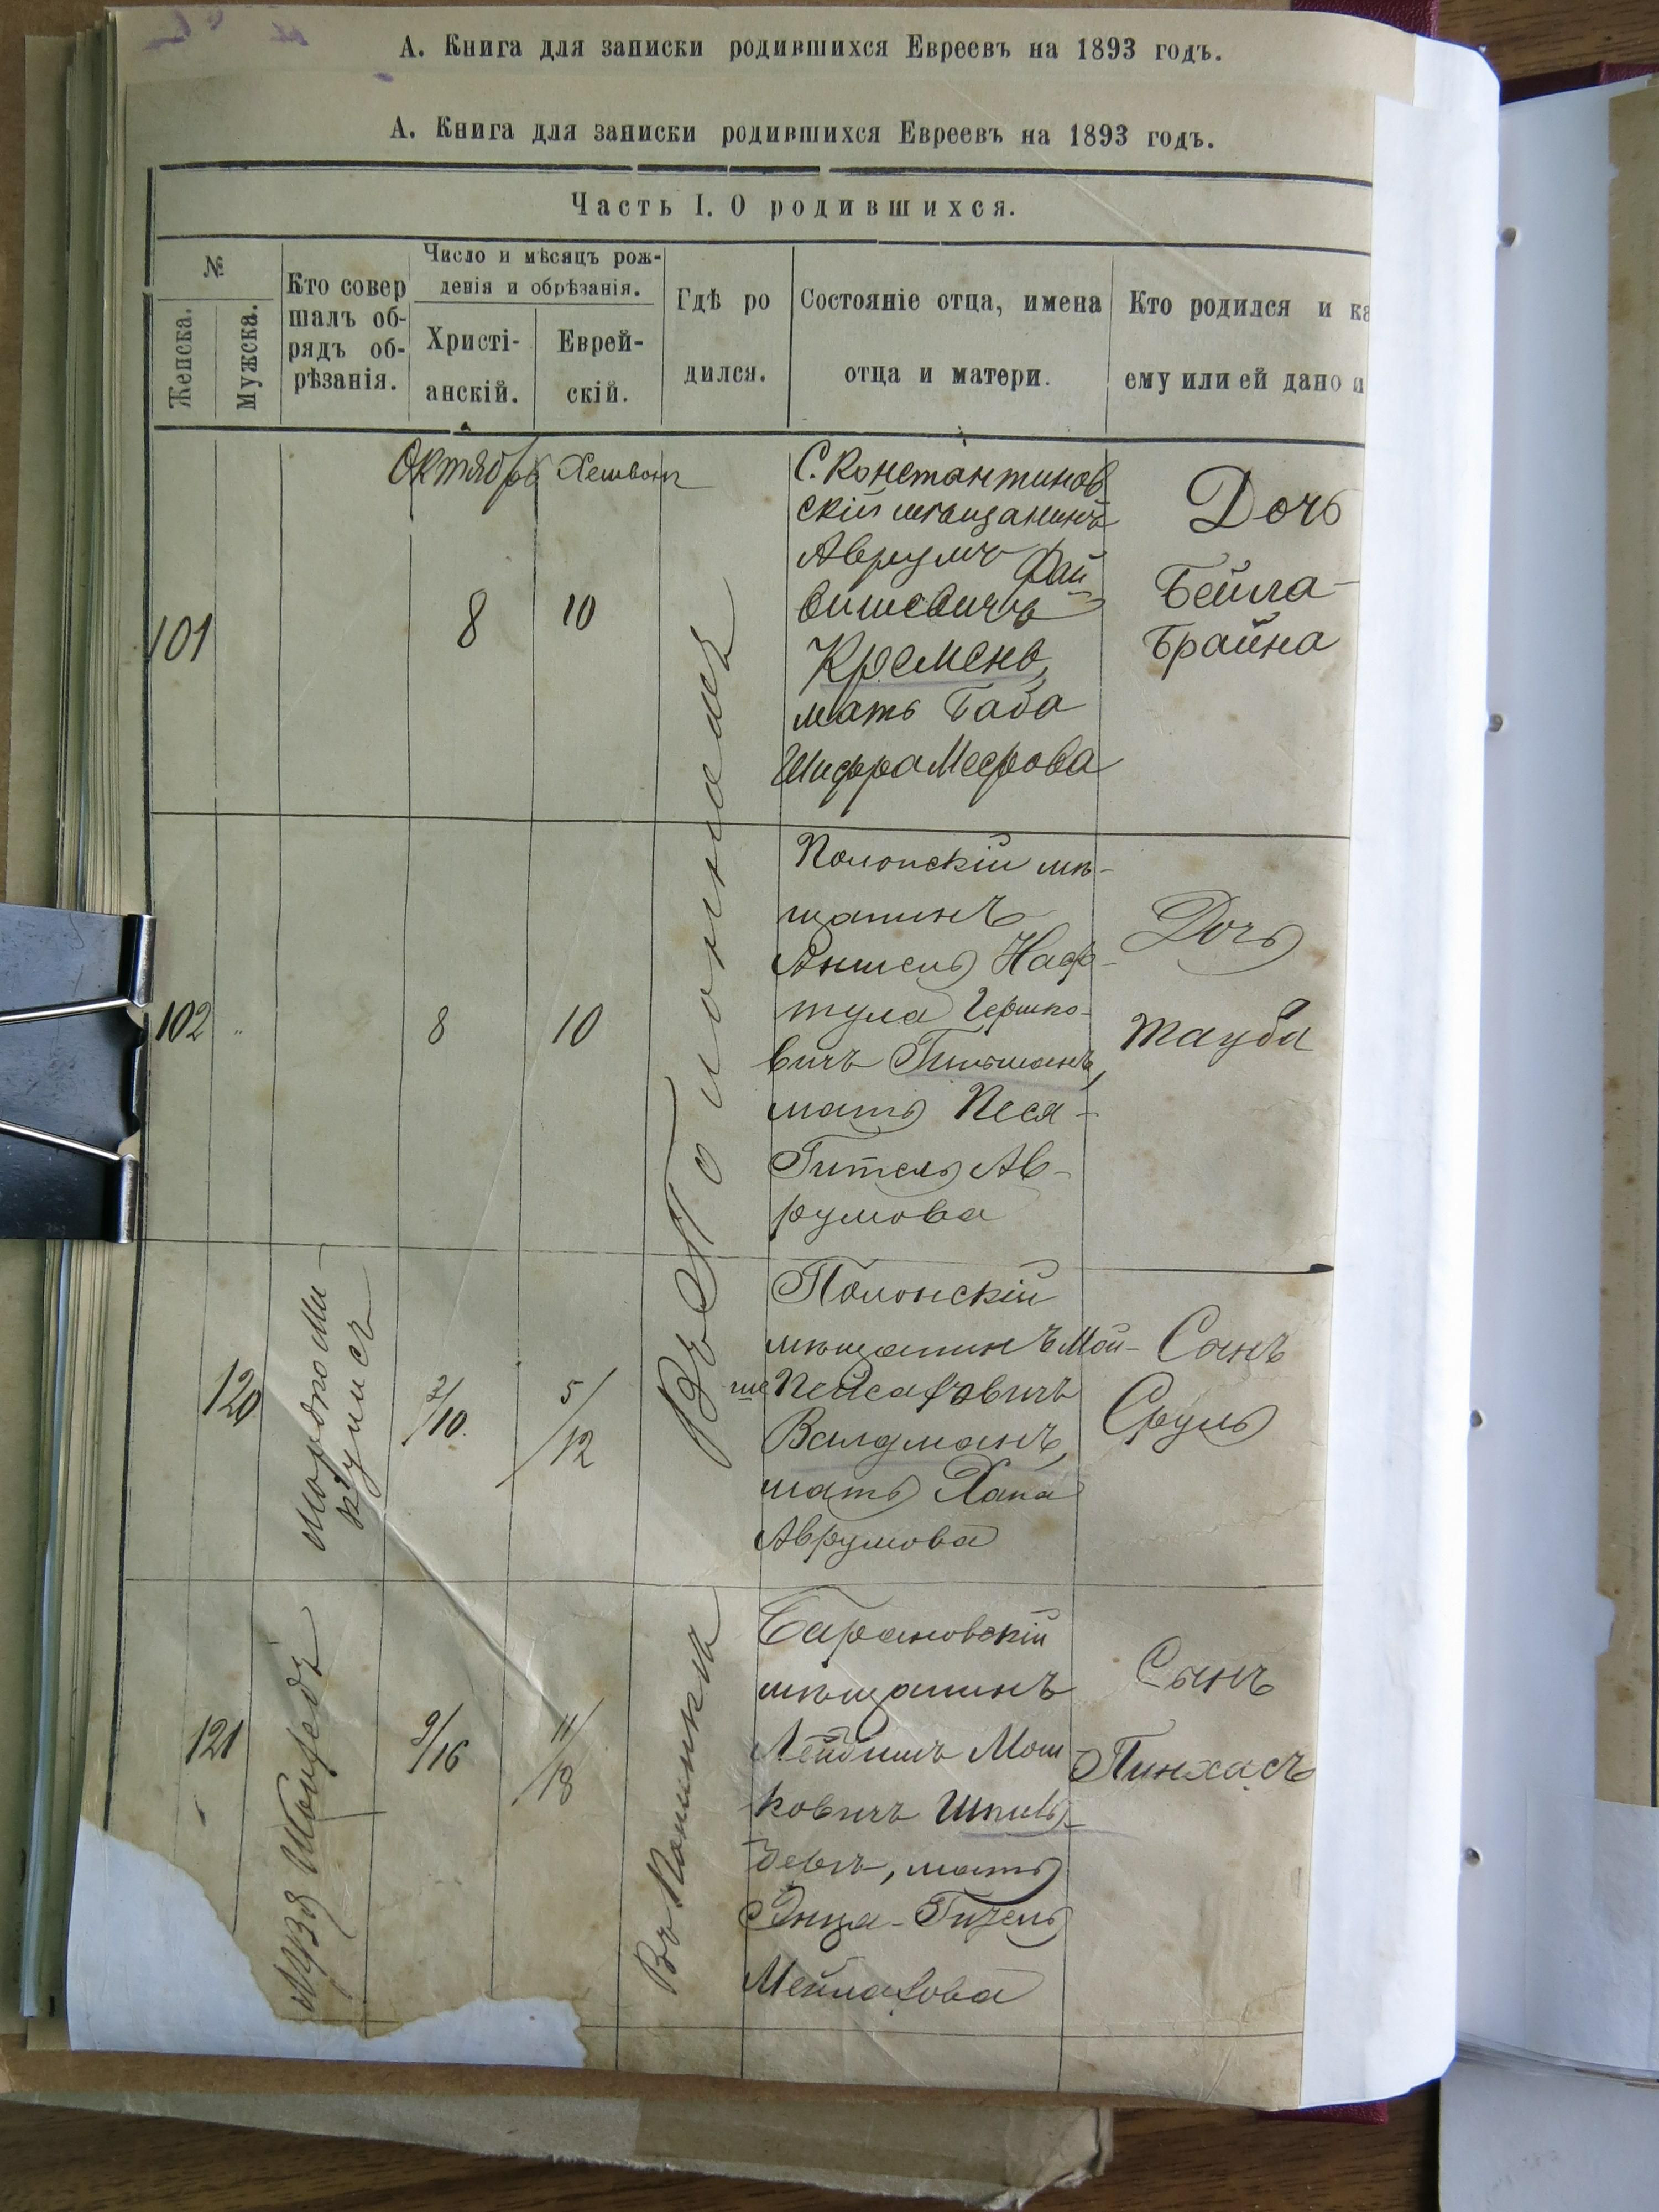 А. Книга для записки родившихся Евреевъ на 1893 годъ.
А. Книга для записки родившихся Евреевъ на 1893 годъ.
Часть I. О родившихся.
№
Женска.
Мужска.
Кто совер
шалъ об-
рядъ об-
рѣзанія.
Число и мѣсяцъ рож-
денія и обрѣзанія.
Христі-
анскій.
Еврей-
скій.
Гдѣ ро
дился.
Состояніе отца, имена
отца и матери.
Кто родился и ка
ему или ей дано и
Октябрь
Хешвонъ
101
8
10
С. Константинов
скій мѣщанинъ
Аврумъ Фай
вишевичъ
Кремень,
мать Баба
Шифра Меерова
Дочь
Бейла-
Брайна
Въ Полонномъ
102
"
8
10
Полонскій мѣ-
щанинъ
Аншель Наф-
тула Гершко-
вичъ Гительманъ,
мать Песя-
Гитель Ав-
румова
Дочь
Тауба
120
Мордко Ми-
кулисъ
3/10.
5/12
Полонскій
мѣщанинъ Мой-
ше Пейсаховичъ
Валдманъ,
мать Хана
Аврумова
Сынъ
Сруль
121
Лузя Шойфедъ
9/16
11/18
Барановскій
мѣщанинъ
Лейбишъ Мош
ковичъ Шпиль-
бергъ, мать
Энца-Гитель
Мейлахова
Сынъ
Пинхасъ